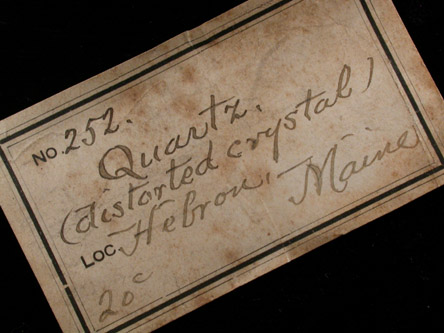 NO. 252.
Quartz.
(distorted crystal)
LOC Hebron, Maine
20c